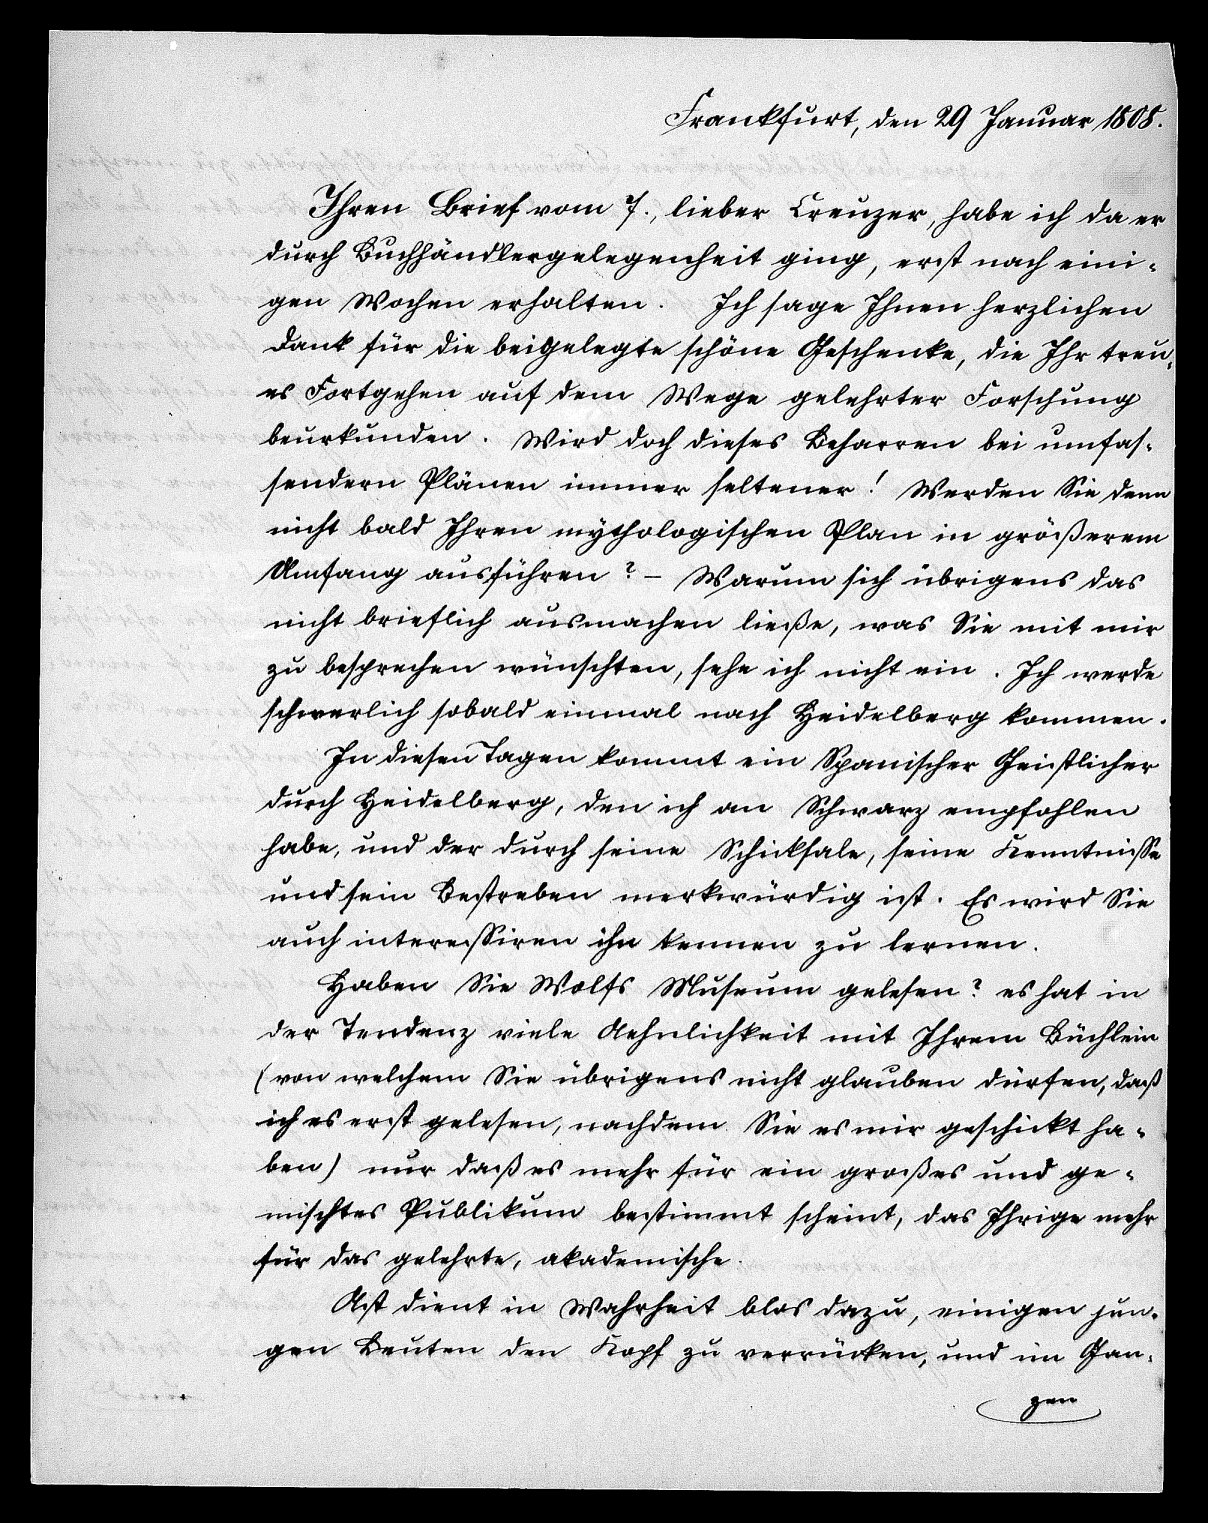 Frankfurt, den 29 Januar 1808.
Ihren Brief vom 7., lieber Creuzer, habe ich da er
durch Buchhändlergelegenheit ging, erst nach eini-
gen Wochen erhalten. Ich sage Ihnen herzlichen
Dank für die beigelegte schöne Geschenke, die Ihr treu-
es Fortgehen auf dem Wege gelehrter Forschung
beurkunden. Wird doch dieses Beharren bei umfas-
sendern Plänen immer seltener! Werden Sie denn
nicht bald Ihren mythologischen Plan in größerem
Umfang ausführen? – Warum sich übrigens das
nicht brieflich ausmachen ließe, was Sie mit mir
zu besprechen wünschten, sehe ich nicht ein. Ich werde
schwerlich sobald einmal nach Heidelberg kommen.
In diesen Tagen kommt ein Spanischer Geistlicher
durch Heidelberg, den ich an Schwarz empfohlen
habe, und der durch seine Schicksale, seine Kenntnisse
und sein Bestreben merkwürdig ist. Es wird Sie
auch interessiren ihn kennen zu lernen.
Haben Sie Wolfs Museum gelesen? es hat in
der Tendenz viele Aehnlichkeit mit Ihrem Büchlein
(von welchem Sie übrigens nicht glauben dürfen, daß
ich es erst gelesen, nachdem Sie es mir geschickt ha-
ben) nur daß es mehr für ein großes und ge-
mischtes Publikum bestimmt scheint, das Ihrige mehr
für das gelehrte, akademische.
Ast dient in Wahrheit blos dazu, einigen jun-
gen Leuten den Kopf zu verrücken, und im Gan-
zen